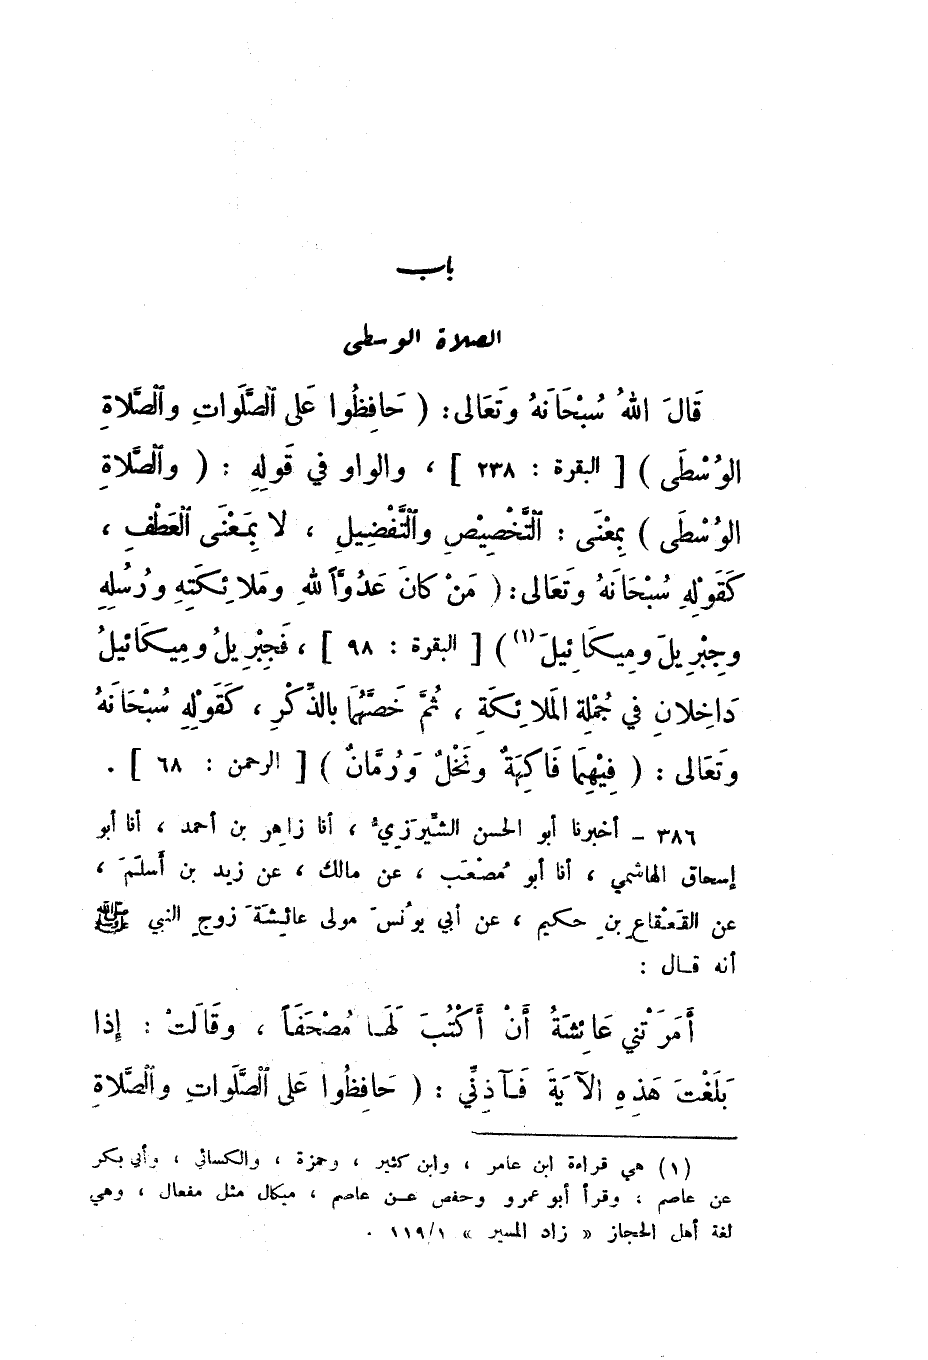 باب
الصلاة الوسطى
قَالَ اللهُ سُبْحَانَهُ وتَعَالى: ( حَافِظُوا عَلى الصَّلَواتِ والصَّلاةِ
الوُسْطَى ) [ البقرة : ٢٣٨ ] ، والواو في قَولِهِ : ( والصَّلاةِ
الوُسْطَى ) بِمعْنَى : التَّخْصِيْصِ والتَّفْضِيلِ ، لا بِمَعْنَى العَطْفِ ،
كَقَوْلِهِ سُبْحَانَهُ وتَعَالى: ( مَنْ كانَ عَدُوَّاً للهِ ومَلائِكَتِهِ ورُسُلِهِ
وجِبْرِيلَ ومِيكَائِيلَ (١) ) [ البقرة : ٩٨ ] ، فَجِبْرِيلُ ومِيكَائيلُ
دَاخِلانِ في جُمْلَةِ المَلائِكَةِ ، ثُمَّ خَصَّهُمَا بالذِّكْرِ ، كَقَوْلِهِ سُبْحَانَهُ
وتَعَالى : ( فِيْهِمَا فَاكِهَةٌ ونَخْلٌ وَرُمَّانٌ ) [ الرحمن : ٦٨ ] .
٣٨٦ - أخبرنا أبو الحسن الشَّيرَزِيُّ ، أنا زاهر بن أحمد ، أنا أبو
إسحاق الهاشمي ، أنا أبو مُصْعَب ، عن مالك ، عن زيد بن أَسلَمَ ،
عن القَعْقاعِ بنِ حكيم ، عن أبي يوُنُسَ مولى عائِشَةَ زوجِ النبي ﷺ
أنه قال :
أَمَرَتْني عَائِشَةُ أَنْ أَكْتُبَ لَهَا مُصْحَفَاً ، وقَالَتْ : إذا
بَلَغْتَ هَذِهِ الآيَةَ فَآذِنِّي : ( حَافِظُوا عَلى الصَّلَواتِ والصَّلاةِ
(١) هي قراءة ابن عامر ، وابن كثير ، وحمزة ، والكسائي ، وأبي بكر
عن عاصم ، وقرأ أبو عمرو وحفص عن عاصم ، ميكال مثل مفعال ، وهي
لغة أهل الحجاز « زاد المسير » ١١٩/١ .